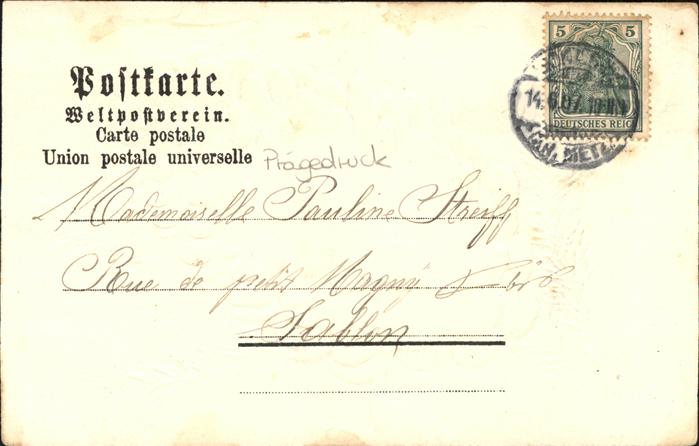 5 5
DEUTSCHES REICH
14.6.07.
METZ
Postkarte.
Weltpostverein.
Carte postale
Union postale universelle
Prägedruck
Mademoiselle Pauline Streiff
Rue de petit Magny
Sablon